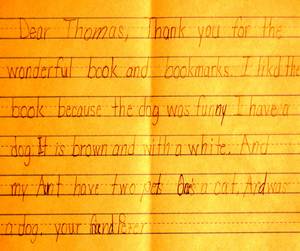 Dear Thomas, Thank you for the
wonderful book and bookmarks. I likd the
book because the dog was funny I have a
dog It is brown and with a white. And
my Ant have two pets a cat. And was
a dog, your friend Peter